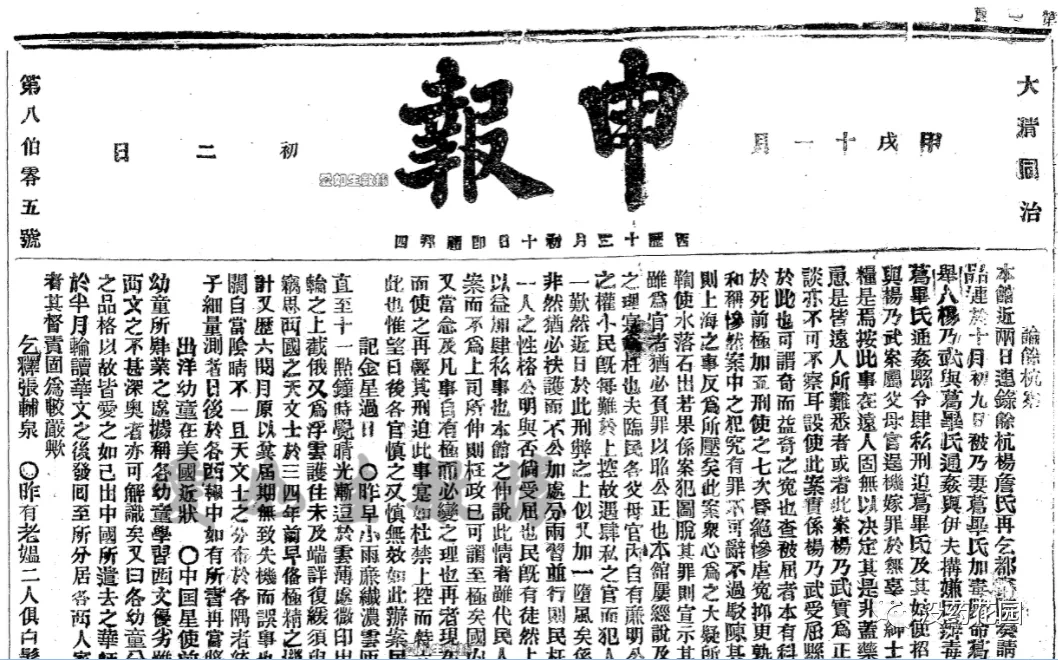 大清同治
甲戌十一月
申報
初二日
第八伯零五號
西歷十二月初十日即禮拜四
論餘杭案
本館近兩日連錄餘杭楊詹氏再乞都奏請
品連於十月初九日被乃妻葛畢氏加毒斃命葛
舉人楊乃武與葛畢氏通姦與伊夫搆嫌毒
葛畢氏通姦縣令肆私刑迫葛畢氏及其奸使招
與楊乃武案屬父母官逞機嫁罪於無辜紳士
糧是焉按此事在遠人固無以決定其是非蓋藥
愚是皆遠人所難悉者或者此案楊乃武實為正
談亦不可不察耳設使此案實係楊乃武受屈縣
於此也可謂奇而益奇之寃也查被屈者本有科
於死前極加五刑使之七次昏絕慘虐寃抑更孰
和稱慘然案中之犯究有罪不可辭不過駁隙甚
則上海之事反為所壓矣此案衆心為之大疑所
鞫使水落石出若果係案犯圖脫其罪則宣示其
雖為官者猶必負罪以昭公正也本館屢經說及
之理寃枉也夫臨民各父母官內自有廉明公
之權小民旣每難於上控故遇肆私之官而犯人
一歎然近日於此刑弊之上似又加一墮風矣係
非然猶必扶護而不公加處分兩習並行則民枉
一人之性格公明與否倘受屈也民旣有徒然上
以益加肆私事也本館之伸說此情者雖代民人
案而不為上司所伸則枉政已可謂至極矣國
又當念及凡事自有極而必變之理也再者現在
而使之再輕其刑迫此事寔如杜禁上控而特
此也惟望日後各官慎之又慎無效如此辦案
記金星過日 〇昨早小雨廉纖濃雲
直至十一點鐘時覺晴光漸逗於雲薄處微印出
輪之上截俄又為浮雲護住未及端詳復緩須臾
竊思西國之天文士於三四年前早俻極精之
計又歷六閱月原以冀屆期無致失機而誤事也
關自當陰晴不一且天文士之分布於各隅者統
子細量測者日後於各西報中如有所書再當將
出洋幼童在美國近狀 〇中国星使前
幼童所肄業之處據稱各幼童學習西文優劣雖
西文之不甚深奧者亦可解識矣又曰各幼童公
之品格以故皆愛之如己出中國所遣去之華師
於半月輪讀華文之後發囘至所分居各西人家
者其督責固為較嚴歟
乞釋張輔泉 〇昨有老媼二人俱白髮